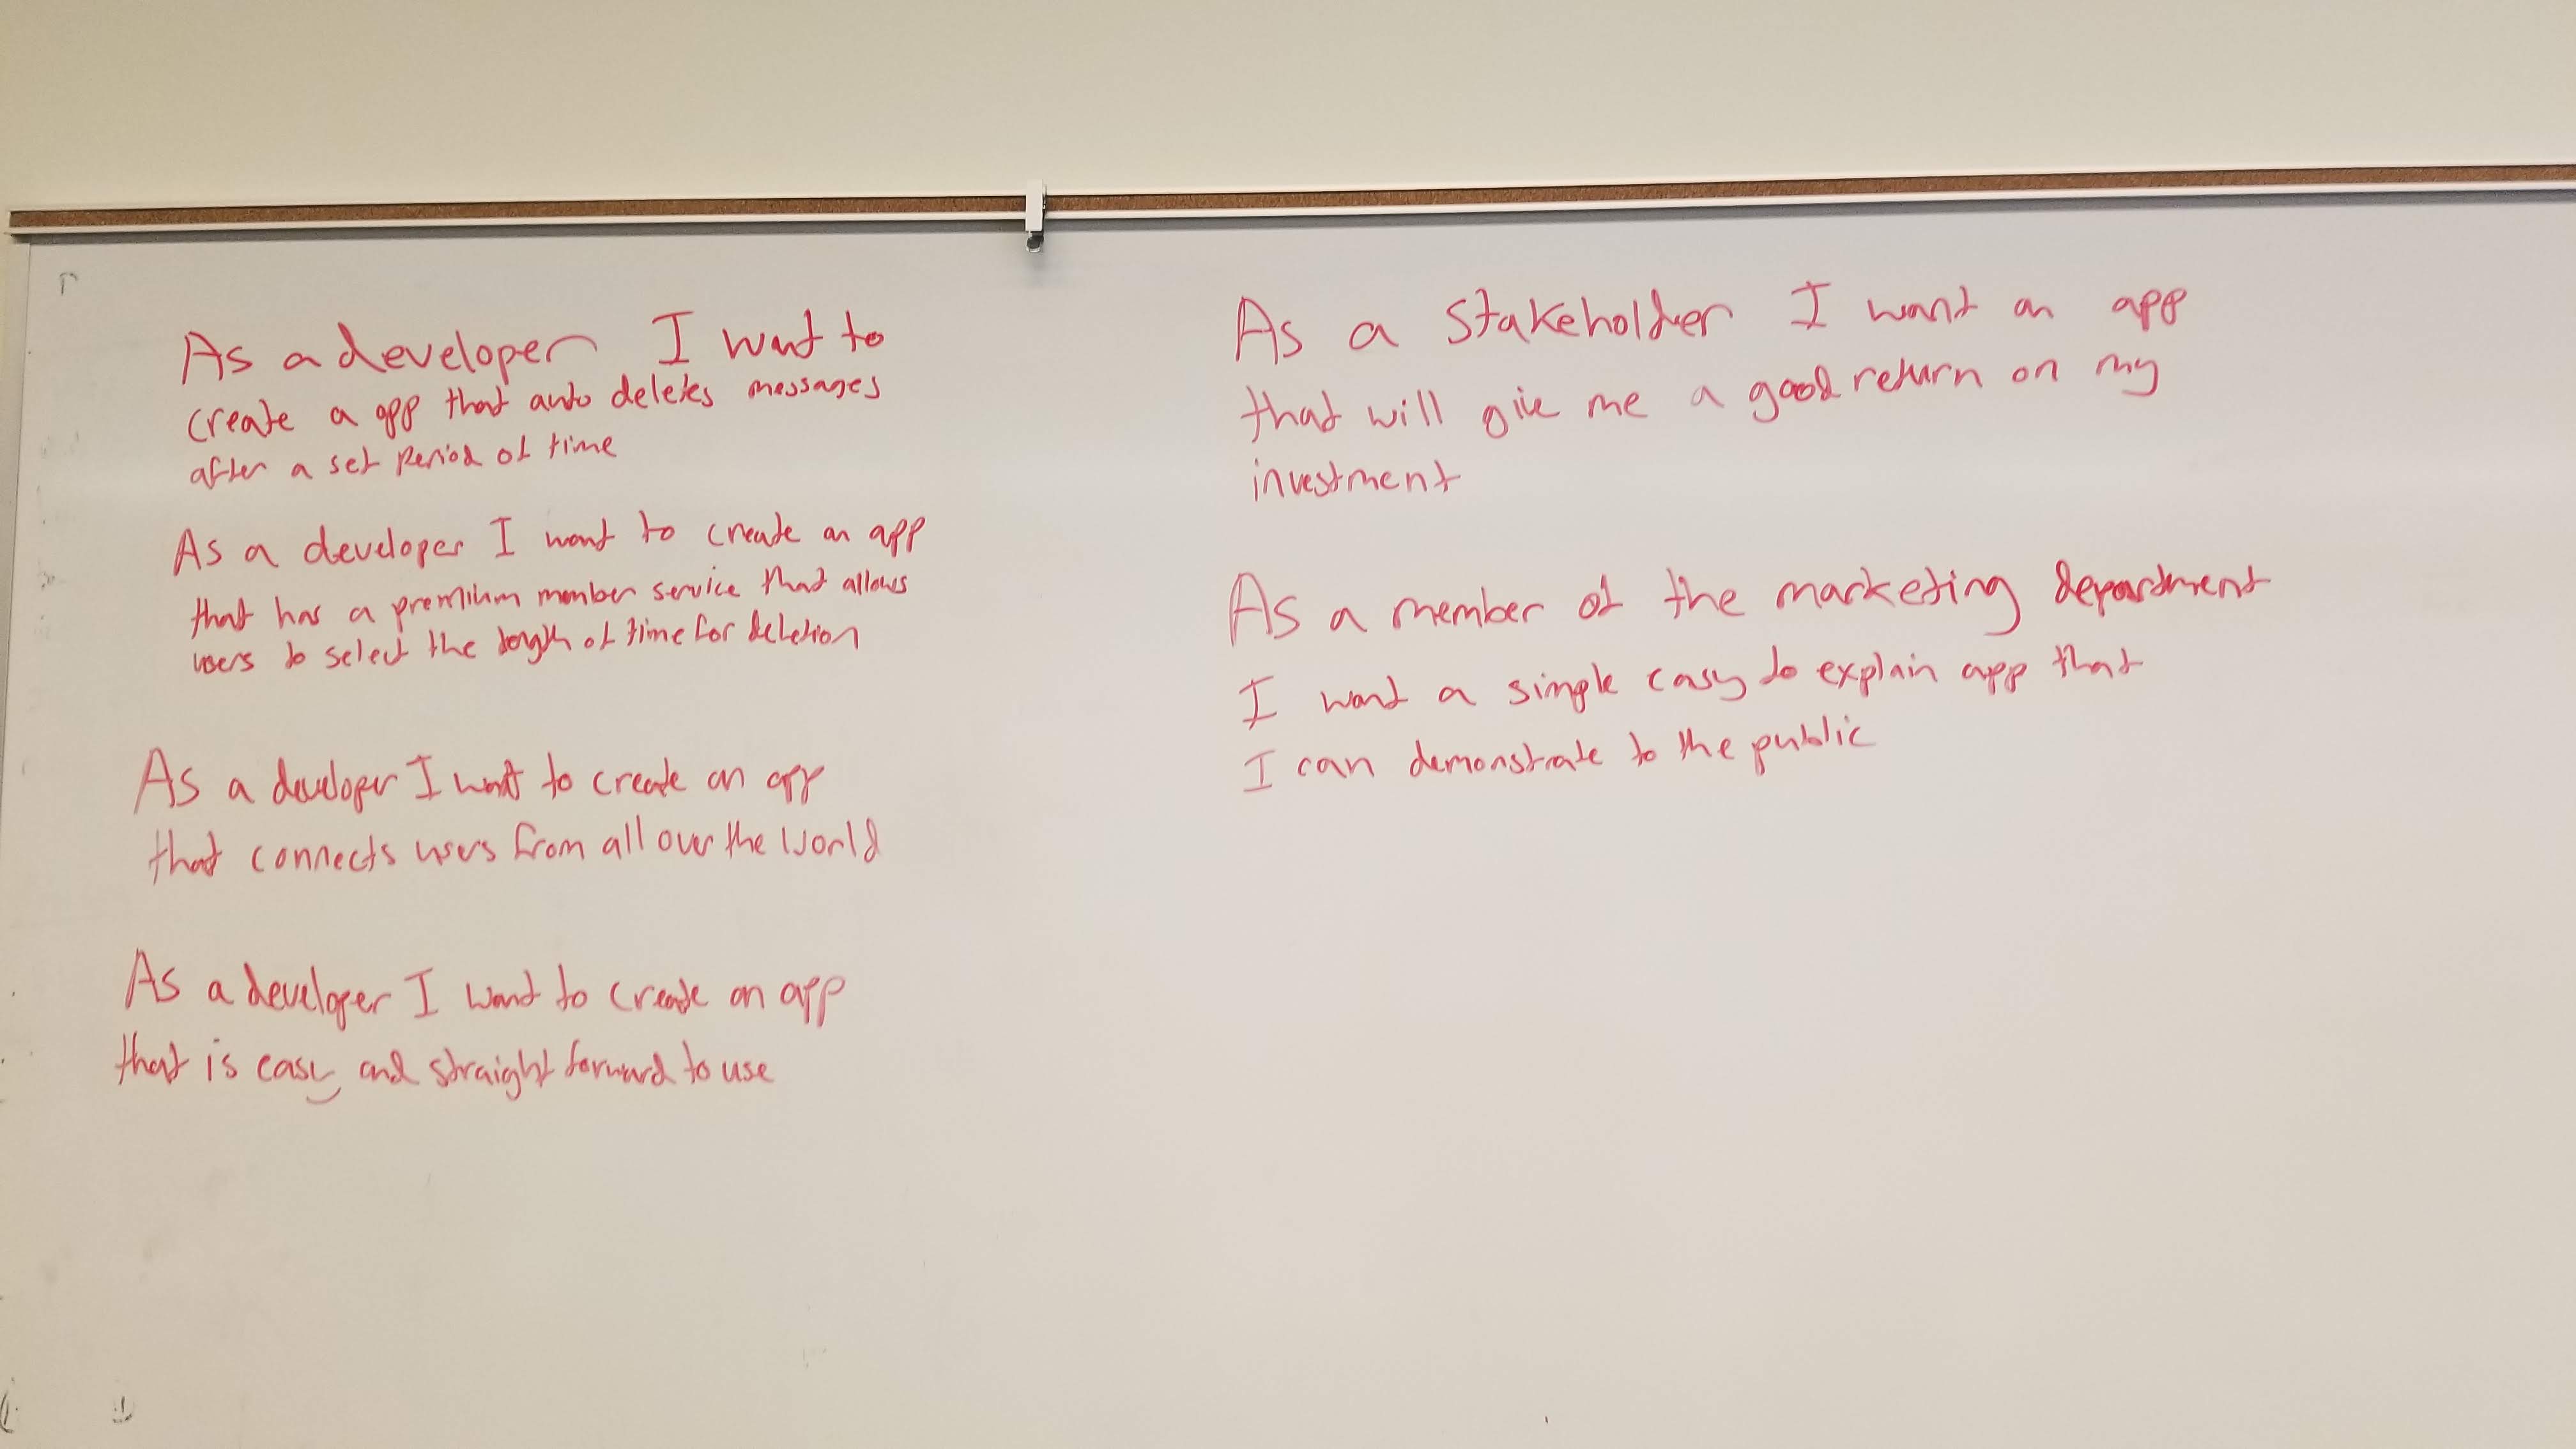 As a developer I want to
create a app that auto deletes messages
after a set period of time
As a developer I want to create an app
that has a premium member service that allows
users to select the length of time for deletion
As a developer I want to create an app
that connects users from all over the world
As a developer I want to create an app
that is easy and straight forward to use
As a stakeholder I want an app
that will give me a good return on my
investment
As a member of the marketing department
I want a simple easy to explain app that
I can demonstrate to the public